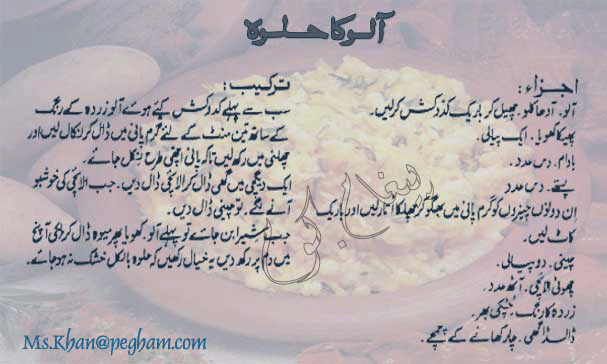 آلو کا حلوہ
اجزاء:
آلو۔ آدھا کلو۔ چھیل کر باریک کدوکش کرلیں۔
پھیکا کھویا۔ ایک پیالی۔
بادام۔ دس عدد۔
پستے۔ دس عدد
اِن دونوں چیزوں کو گرم پانی میں بھگو کر چھلکا اُتار لیں اور باریک
کاٹ لیں۔
چینی۔ دو پیالی۔
چھوٹی الائچی۔ آٹھ عدد۔
زردہ کا رنگ۔ چُٹکی بھر۔
ڈالڈا گھی۔ چار کھانے کے چمچے۔
ترکیب:
سب سے پہلے کدوکش کیئے ہوئے آلو زردہ کے رنگ
کے ساتھ تین منٹ کے لئے گرم پانی میں ڈال کر نکال لیں اور
چھلنی میں رکھ لیں تاکہ پانی اچھی طرح نکل جائے۔
ایک دیگچی میں گھی ڈال کر الائچی ڈال دیں۔ جب الائچی کی خوشبو
آنے لگے۔ تو چینی ڈال دیں۔
جب شیرا بن جائے تو پہلے آلو۔ کھویا پھر میوہ ڈال کر ہلکی آنچ
میں دم پر رکھ دیں یہ خیال رکھیں کہ حلوہ بالکل خشک نہ ہو جائے۔
Ms.Khan@pegham.com